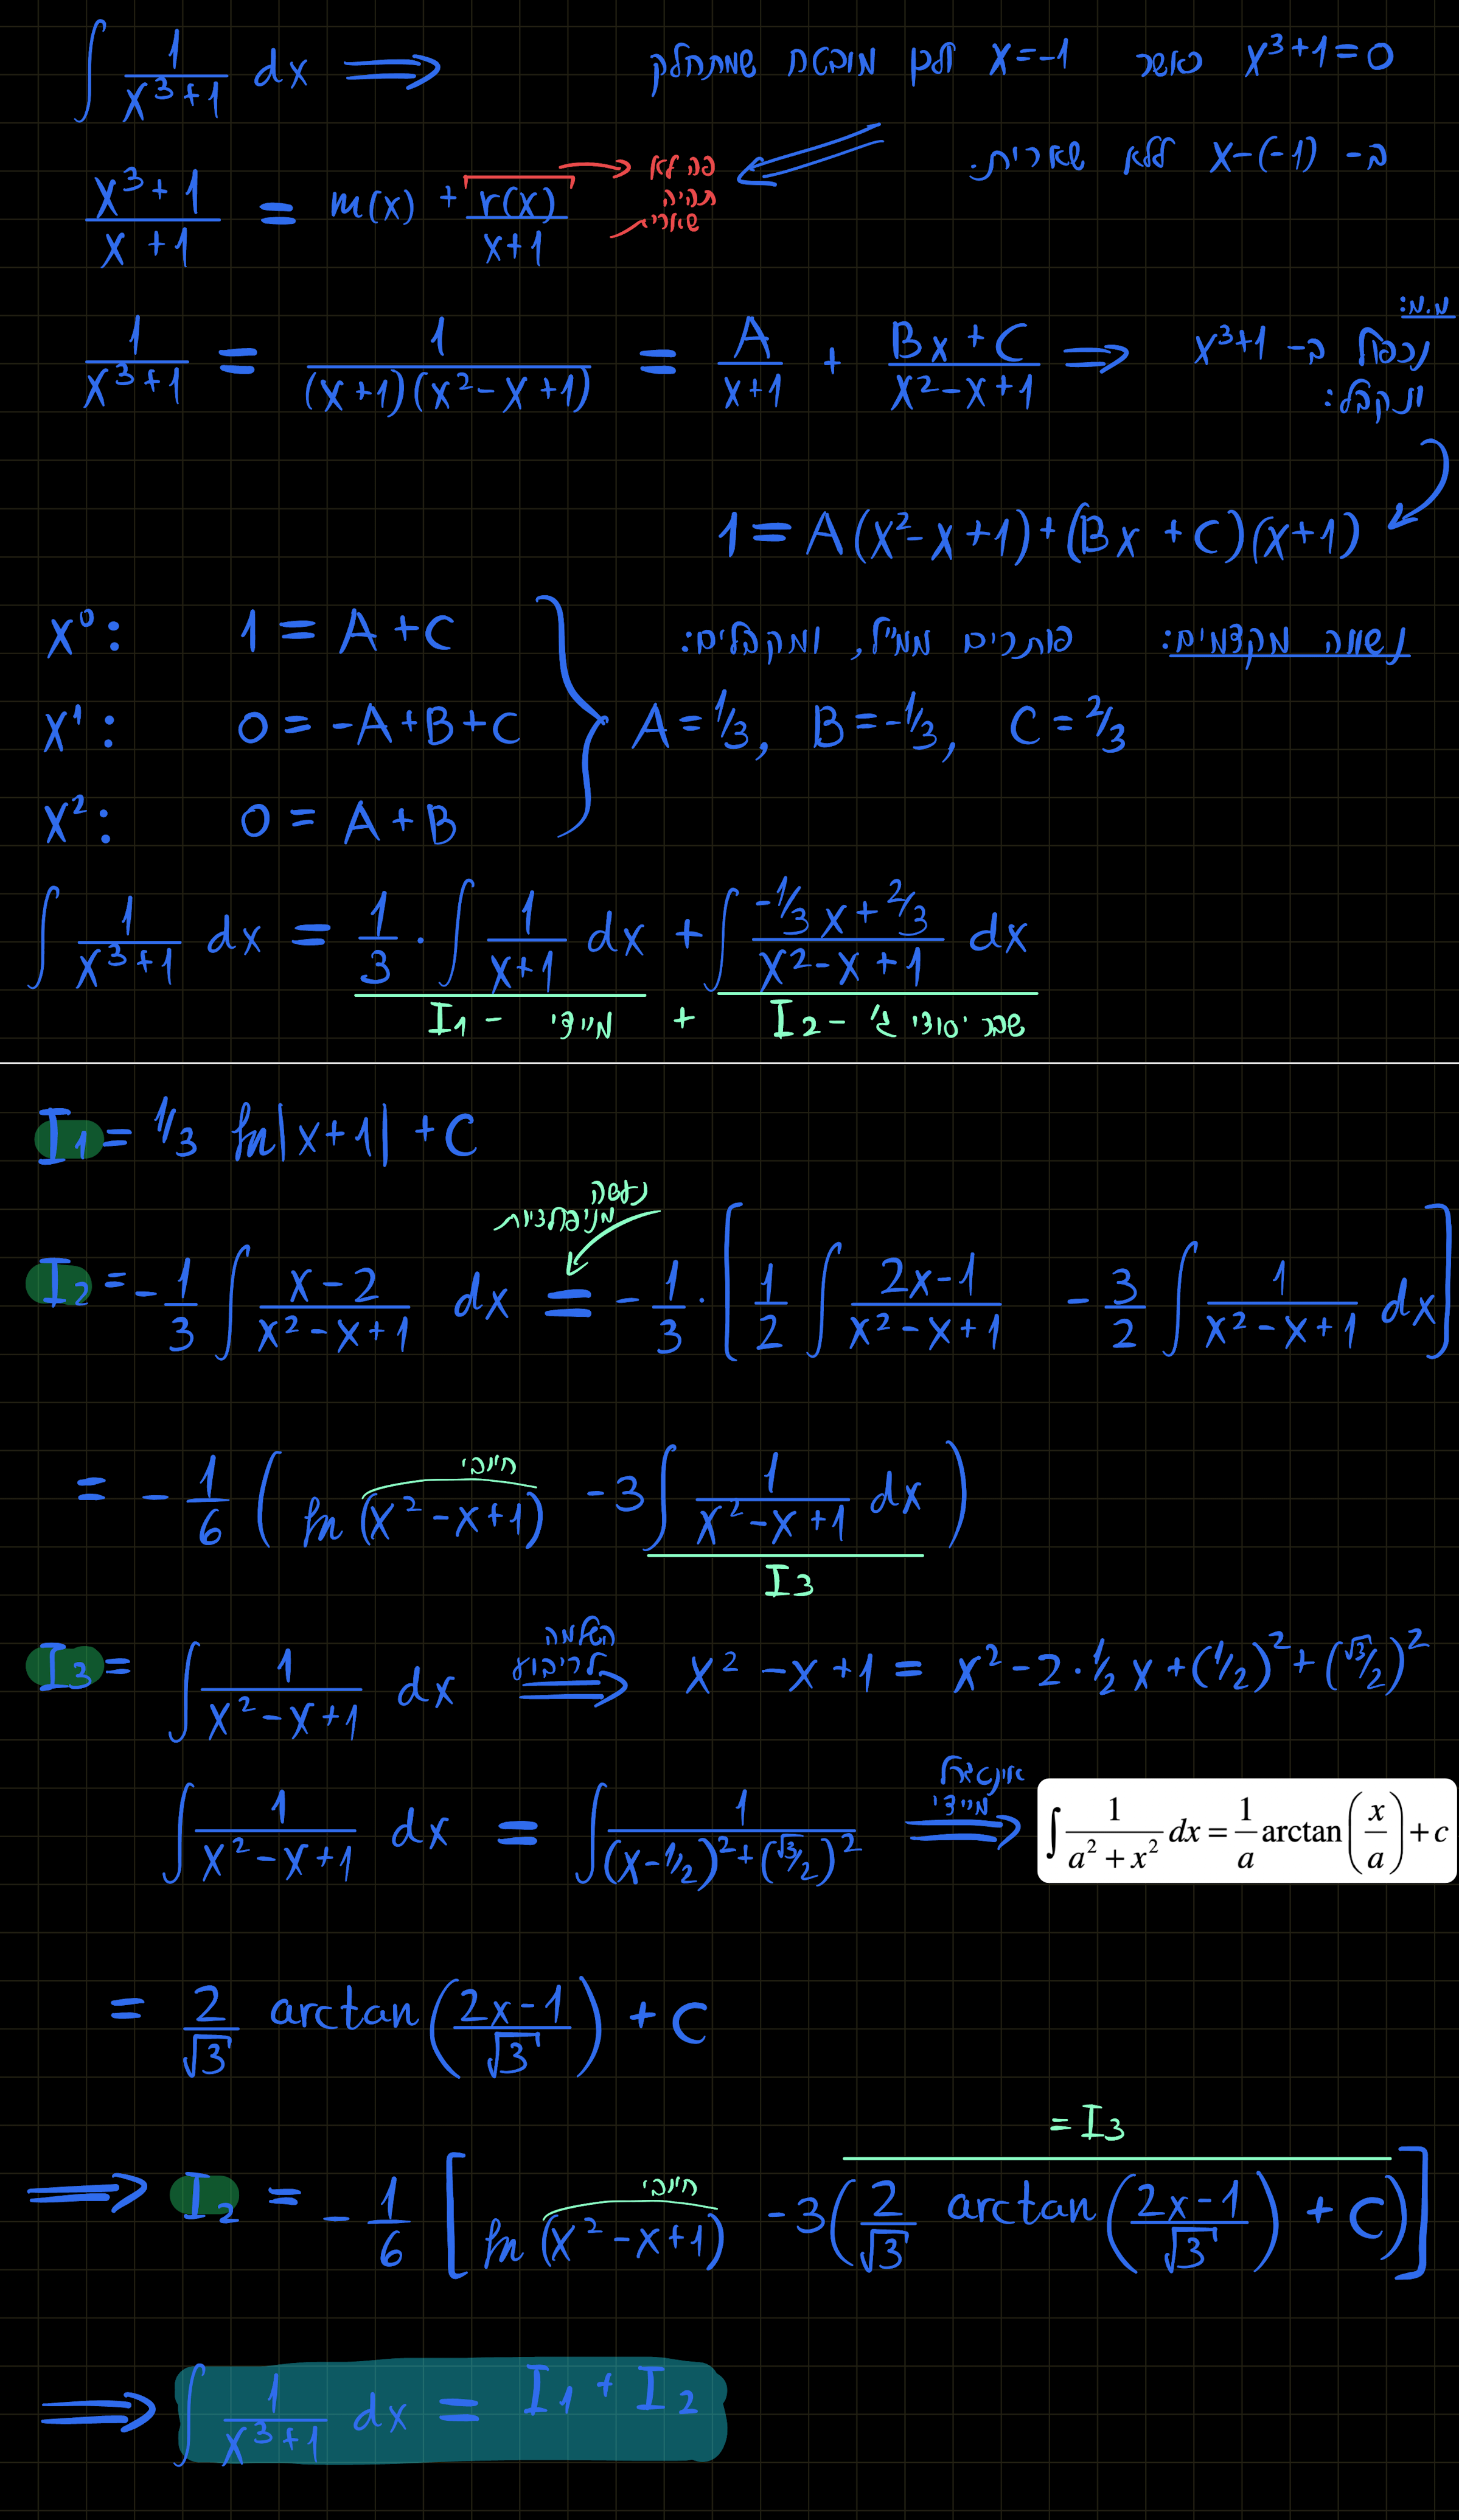 ∫ 1/(x³+1) dx ⟹ x³+1=0 כאשר x=-1 ולכן מובטח שמתחלק
ב- x-(-1) ללא שארית.
(x³+1)/(x+1) = m(x) + r(x)/(x+1) → פה לא תהיה שארית
1/(x³+1) = 1/((x+1)(x²-x+1)) = A/(x+1) + (Bx+C)/(x²-x+1) ⟹ מ.מ: נכפול ב- x³+1 ונקבל:
1 = A(x²-x+1)+(Bx+C)(x+1)
נשווה מקדמים: פותרים ממ״ל, ומקבלים:
x⁰: 1 = A+C
x¹: 0 = -A+B+C } A=1/3, B=-1/3, C=2/3
x²: 0 = A+B
∫ 1/(x³+1) dx = 1/3 · ∫ 1/(x+1) dx + ∫ (-1/3 x + 2/3)/(x²-x+1) dx
I₁ - מיידי + I₂ - שבר יסודי ג'
I₁ = 1/3 ln|x+1| + C
נעשה מניפולציות
I₂ = -1/3 ∫ (x-2)/(x²-x+1) dx = -1/3 · [1/2 ∫ (2x-1)/(x²-x+1) - 3/2 ∫ 1/(x²-x+1) dx]
חיובי
= -1/6 ( ln(x²-x+1) - 3∫ 1/(x²-x+1) dx )
I₃
I₃ = ∫ 1/(x²-x+1) dx השלמה לריבוע ⟹ x²-x+1 = x²-2·1/2 x+(1/2)²+(√3/2)²
∫ 1/(x²-x+1) dx = ∫ 1/((x-1/2)²+(√3/2)²) אינטגרל מיידי ⟹ ∫ 1/(a²+x²) dx = 1/a arctan(x/a) + c
= 2/√3 arctan((2x-1)/√3) + C
= I₃
חיובי
⟹ I₂ = -1/6 [ ln(x²-x+1) - 3(2/√3 arctan((2x-1)/√3) + C) ]
⟹ ∫ 1/(x³+1) dx = I₁ + I₂